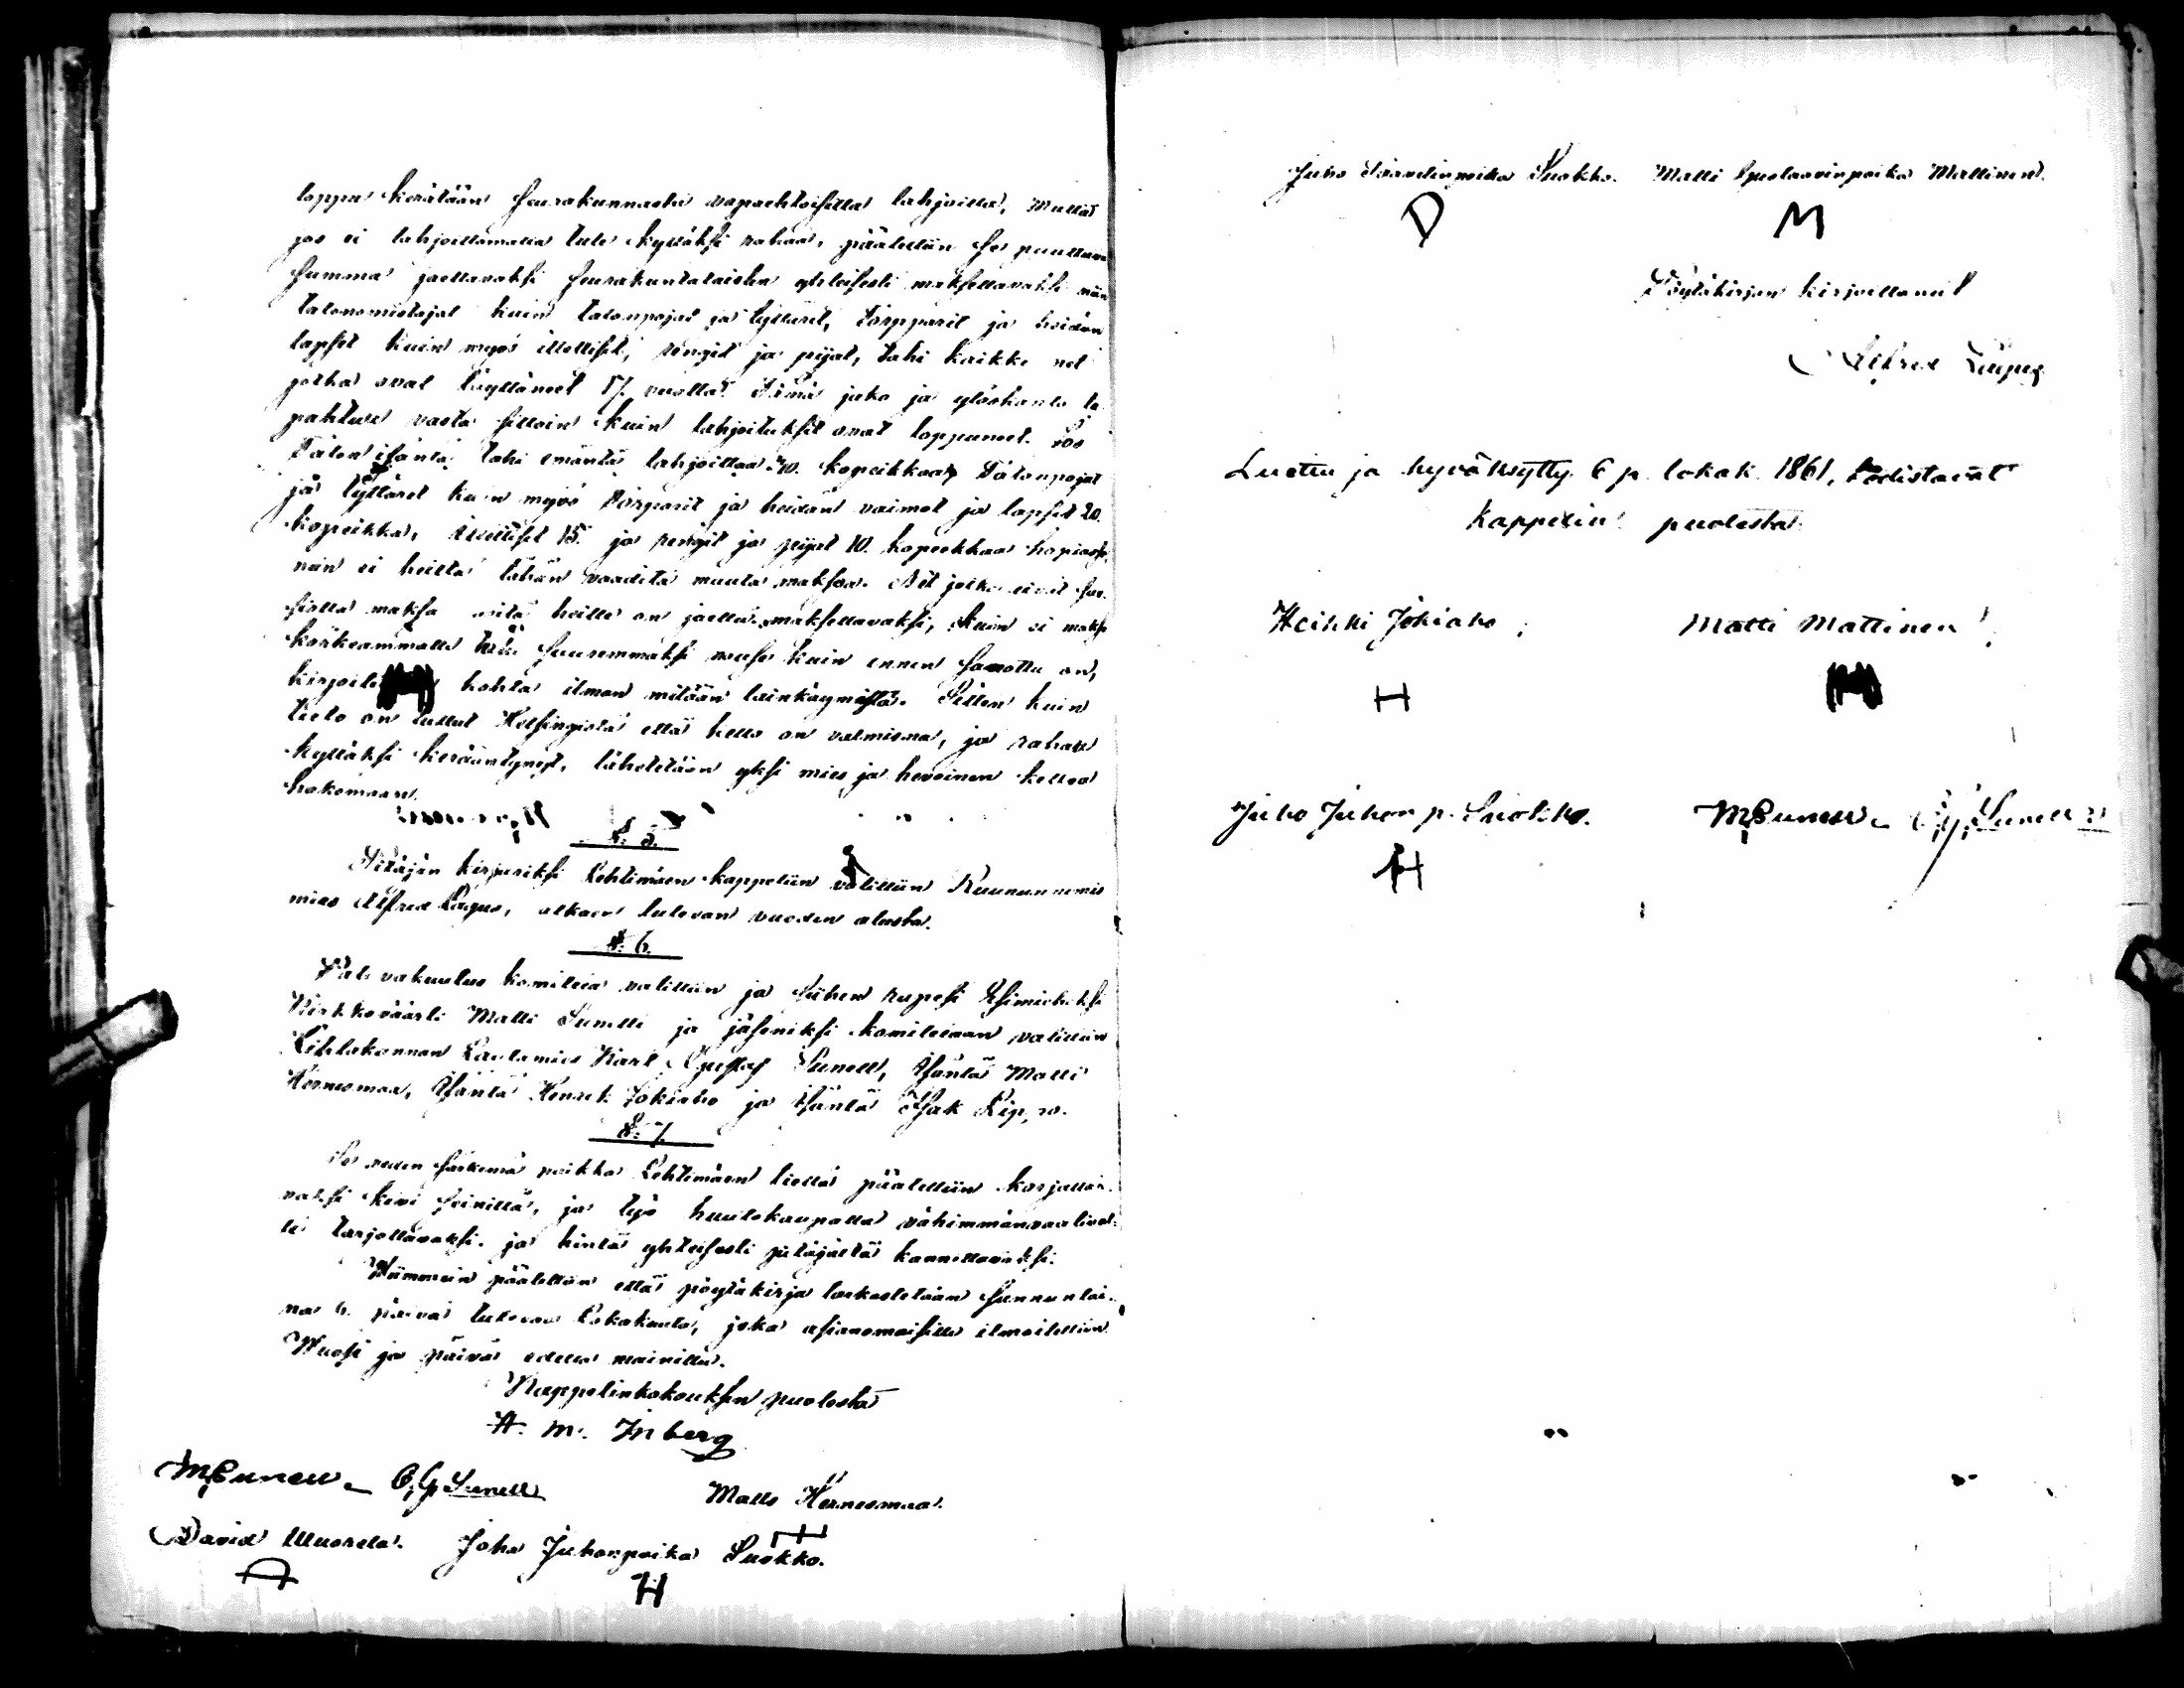 loppu kerätään seurakunnasta vapaehtoisilla lahjoilla, Mutta
jos ei lahjoittamalla tule kylläksi rahaa, päätettiin se puuttuva
summa jaettavaksi seurakuntalaisten yhteisesti maksettavaksi niin
talonomistajat kuin talonpojat ja tyttäret, Torpparit ja heidän
lapset kuin myös itselliset, rengit ja pijat, tahi kaikki net
jotka ovat täyttäneet 17 vuotta. Tämä jako ja ylöskanto ta
pahtuu vasta silloin kuin lahjoitukset ovat loppuneet. Jos
Talon isäntä tahi emäntä lahjoittaa 40. kopeikkaa, Talonpojat
ja tyttäret kuin myös Torparit ja heidän vaimot ja lapset 20.
kopeikka, itselliset 15. ja rengit ja piijat 10. kopeekkaa hopiassa
niin ei heiltä tähän vaadita muuta maksoa. Net jotka eivät suo
siolla maksa mitä heille on jaettu maksettavaksi, kuin ei maksu
korkeammalle tule suuremmaksi nouse kuin ennen sanottu on,
kohta ilman mitään lainkäymistä. Sitten kuin
tieto on tullut Helsingistä että kello on valmisna, ja rahaa
kylläksi keräântynyt, lähetetään yksi mies ja hevoinen kelloa
hakemaan.
§. 5.
Pitäjän kirjuriksi Lehtimäen kappeliin valittiin Ruununnimis
mies Alfred Lagus, alkaen tulevan vuoden alusta.
§. 6.
Palovakuutus komitea valittiin ja siihen rupesi Esimieheksi
Kirkkovääsli Matti Sunelli ja jäseniksi komiteaan valittiin
Kihlakunnan Lautamies Karl Gustaf Sunell, Isäntä Matti
Hernesmaa, Isäntä Henrik Jokiaho ja Isäntä Isak
§. 7.
Se veden särkemä paikka Lehtimäen tiellä päätettiin korjatta-
vaksi kivi seinillä, ja työ huutokaupalla vähimmänvaalival-
le tarjottavaksi. ja hinta yhteisesti pitäjältä kannettavaksi.
Wiimmein päätettiin että pöytäkirja tarkastetaan sunnuntai-
na 6. päivä tulevaa Lokakuuta, joka asianomaisille ilmoitettiin.
Wuosi ja päivä edellä mainittu.
Kappelinkokouksen puolesta
A. M. Inberg
M. Sunell C. G. Sunell Matts Hernesmaa.
David Wuorela. Joha Juhonpoika Suokko.
H
Juho Suokko. Matti Kustaavinpoika Mattinen.
D M
Pöytäkirjan kirjoittanut
Alfred Lagus
Luettu ja hyväksytty 6 p. lokak. 1861, todistavat
Kappelin puolesta
Heikki Jokiaho, Matti Mattinen,
H
Juho Juhon p. Suokko. M. Sunell C. G. Sunell
H